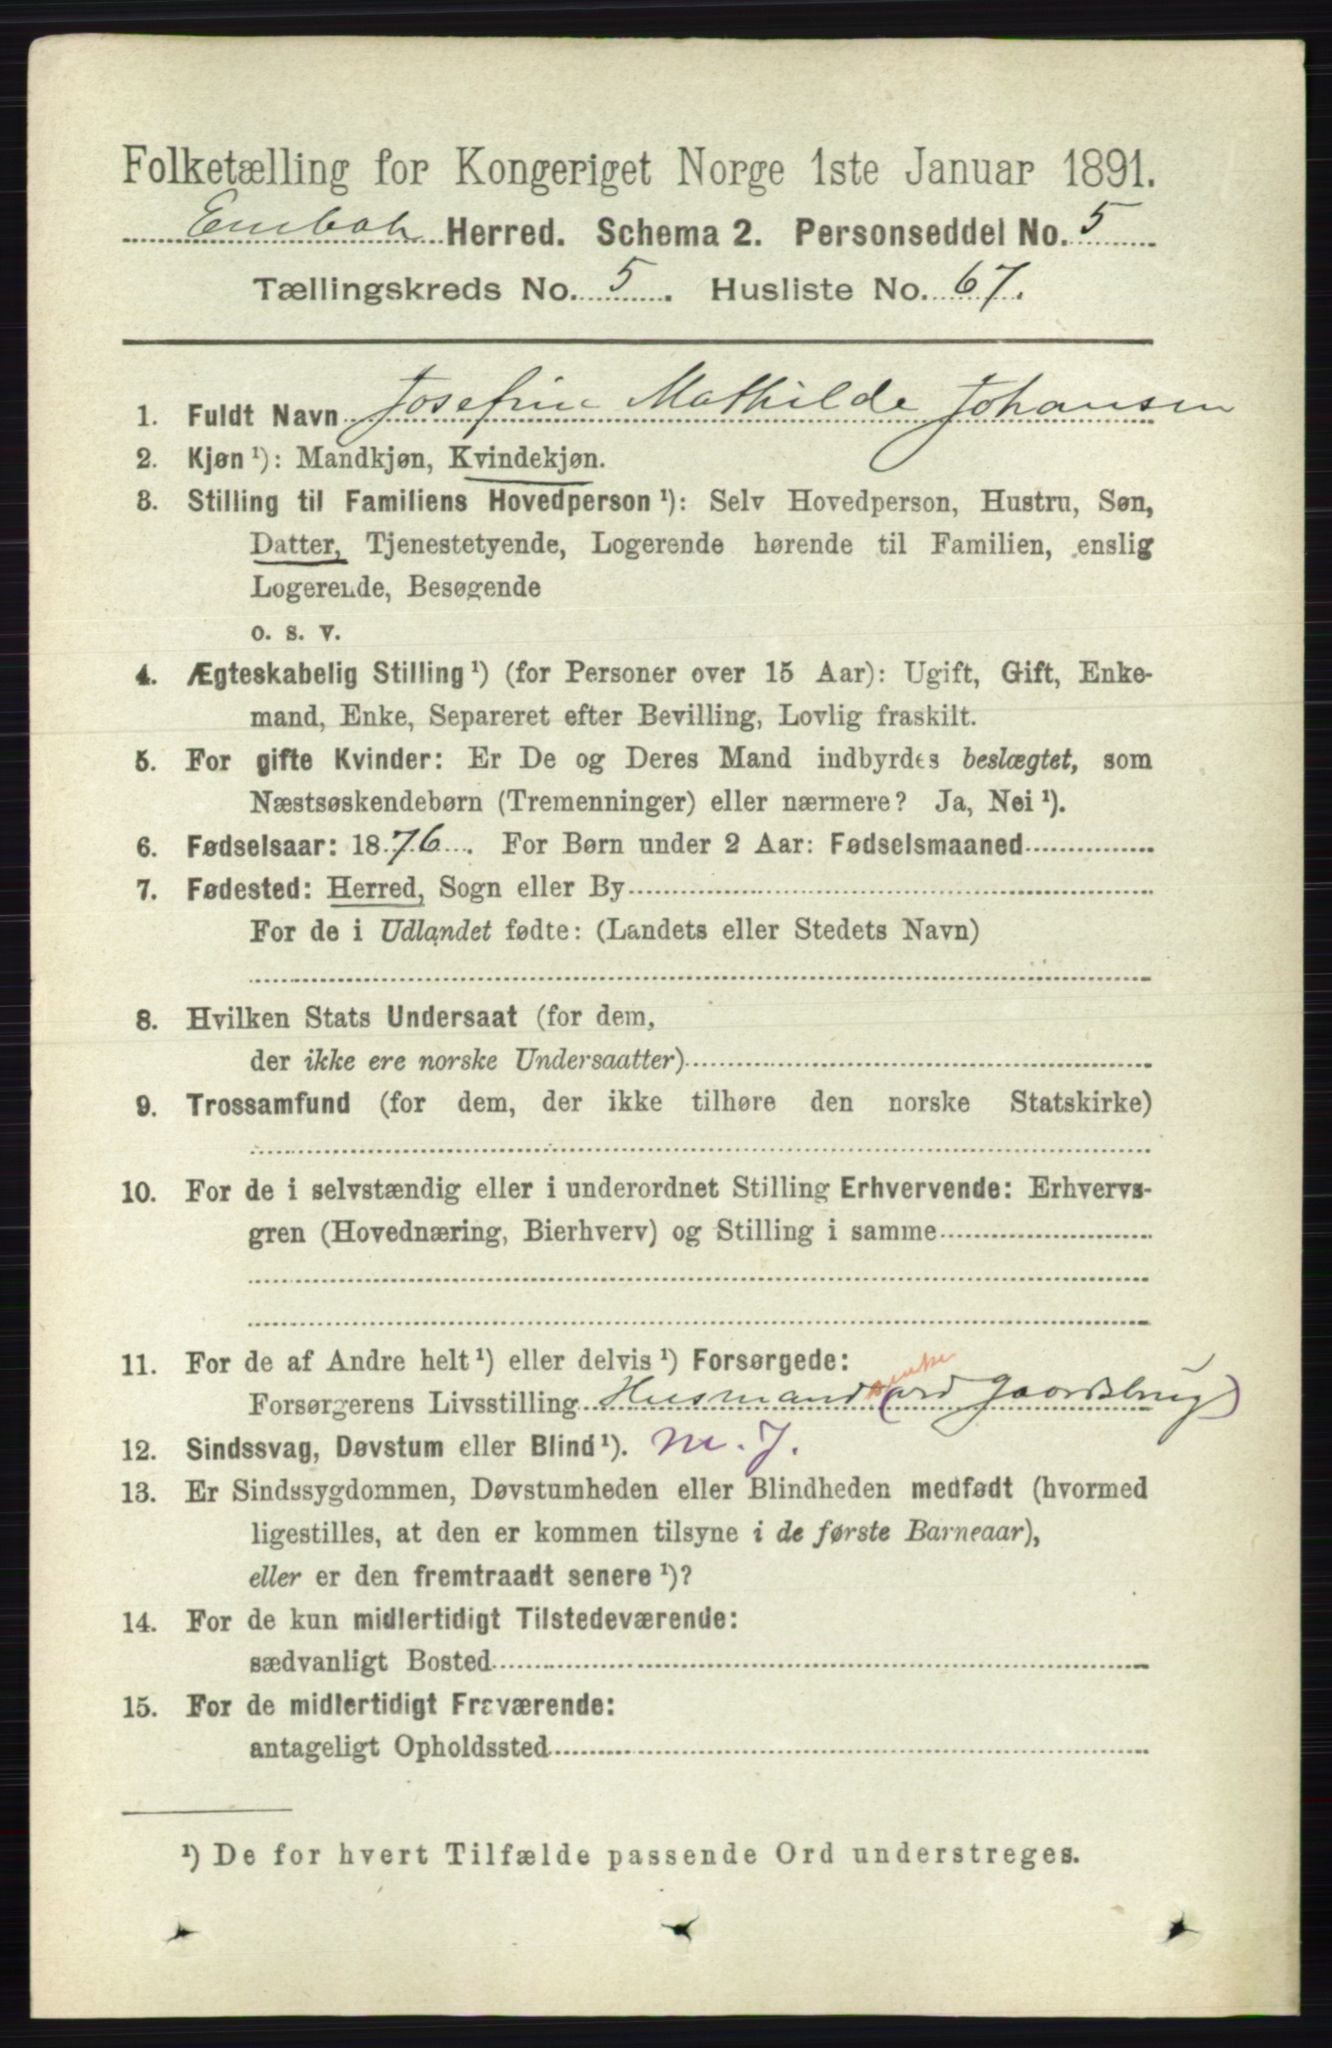 Folketælling for Kongeriget Norge 1ste Januar 1891.
Herred. Schema 2. Personseddel No. 5
Tællingskreds No. 5. Husliste No. 67.
1. Fuldt Navn Josefine Mathilde Johansen
2. Kjøn ¹): Mandkjøn, Kvindekjøn.
3. Stilling til Familiens Hovedperson ¹): Selv Hovedperson, Hustru, Søn,
Datter, Tjenestetyende, Logerende hørende til Familien, enslig
Logerende, Besøgende
o. s. v.
4. Ægteskabelig Stilling ¹) (for Personer over 15 Aar): Ugift, Gift, Enke-
mand, Enke, Separeret efter Bevilling, Lovlig fraskilt.
5. For gifte Kvinder: Er De og Deres Mand indbyrdes beslægtet, som
Næstsøskendebørn (Tremenninger) eller nærmere? Ja, Nei ¹).
6. Fødselsaar: 1876. For Børn under 2 Aar: Fødselsmaaned
7. Fødested: Herred, Sogn eller By
For de i Udlandet fødte: (Landets eller Stedets Navn)
8. Hvilken Stats Undersaat (for dem,
der ikke ere norske Undersaatter)
9. Trossamfund (for dem, der ikke tilhøre den norske Statskirke)
10. For de i selvstændig eller i underordnet Stilling Erhvervende: Erhvervs-
gren (Hovednæring, Bierhverv) og Stilling i samme
11. For de af Andre helt ¹) eller delvis ¹) Forsørgede:
Forsørgerens Livsstilling Husmand Gaardsbrug)
12. Sindssvag, Døvstum eller Blind ¹). m. J.
13. Er Sindssygdommen, Døvstumheden eller Blindheden medfødt (hvormed
ligestilles, at den er kommen tilsyne i de første Barneaar),
eller er den fremtraadt senere ¹)?
14. For de kun midlertidigt Tilstedeværende:
sædvanligt Bosted
15. For de midlertidigt Fraværende:
antageligt Opholdssted
¹) De for hvert Tilfælde passende Ord understreges.